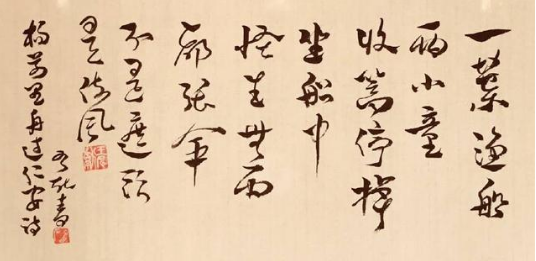 一葉漁船
兩小童
收篙停棹
坐船中
怪生無雨
都張傘
不是遮頭
是使風
楊萬里舟過仁安詩
書